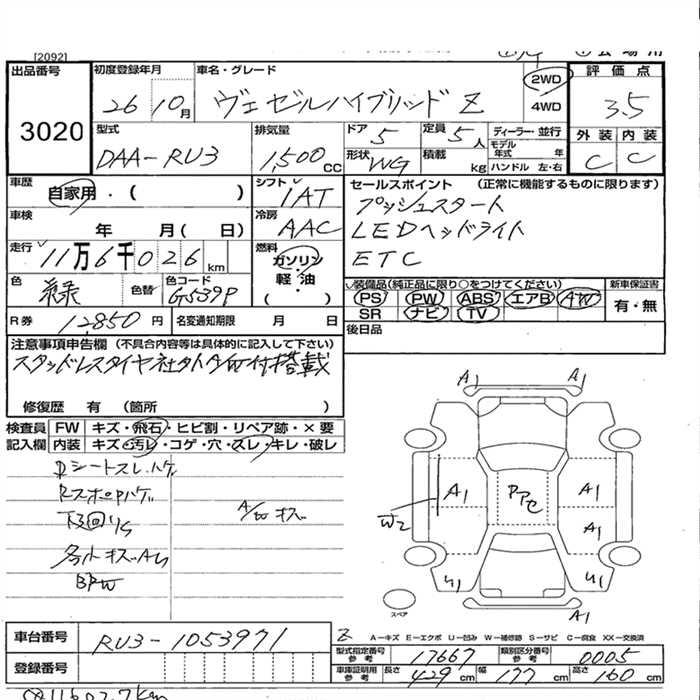 [2092]
出品番号 初度登録年月 車名・グレード 2WD 評価点
3020 26 10月 ヴェゼルハイブリッド Z 4WD 3.5
型式 排気量 ドア 定員 ディーラー・並行 外装 内装
DAA-RU3 1,500 CC 5 5人 モデル年式 年 C C
形状 WG 積載 kg ハンドル 左・右
車歴 自家用・( ) シフト IAT セールスポイント (正常に機能するものに限ります)
車検 年 月( 日) 冷房 AAC プッシュスタート
LEDヘッドライト
走行 11万6千026km 燃料 ガソリン・軽油・( ) ETC
色 緑 色替 色コード G539P
装備品(純正品に限り○をつけてください) 新車保証書
PS PW ABS エアB AW 有・無
SR ナビ TV
R券 12,850円 名変通知期限 月 日 後日品
注意事項申告欄 (不具合内容等は具体的に記入して下さい)
修復歴 有 (箇所 )
検査員 FW キズ・飛石・ヒビ割・リペア跡・×要
記入欄 内装 キズ・汚レ・コゲ・穴・スレ・キレ・破レ
A1 A1
A1 A1
W2 A1
U1 U1
A1
スペア
車台番号 RU3-1053971
A-キズ E-エクボ U-凹み W-補修跡 S-サビ C-腐食 XX-交換済
型式指定番号 参考 17667 類別区分番号 参考 0005
登録番号 車庫証明用 参考 長さ 429cm 幅 177cm 高さ 160cm